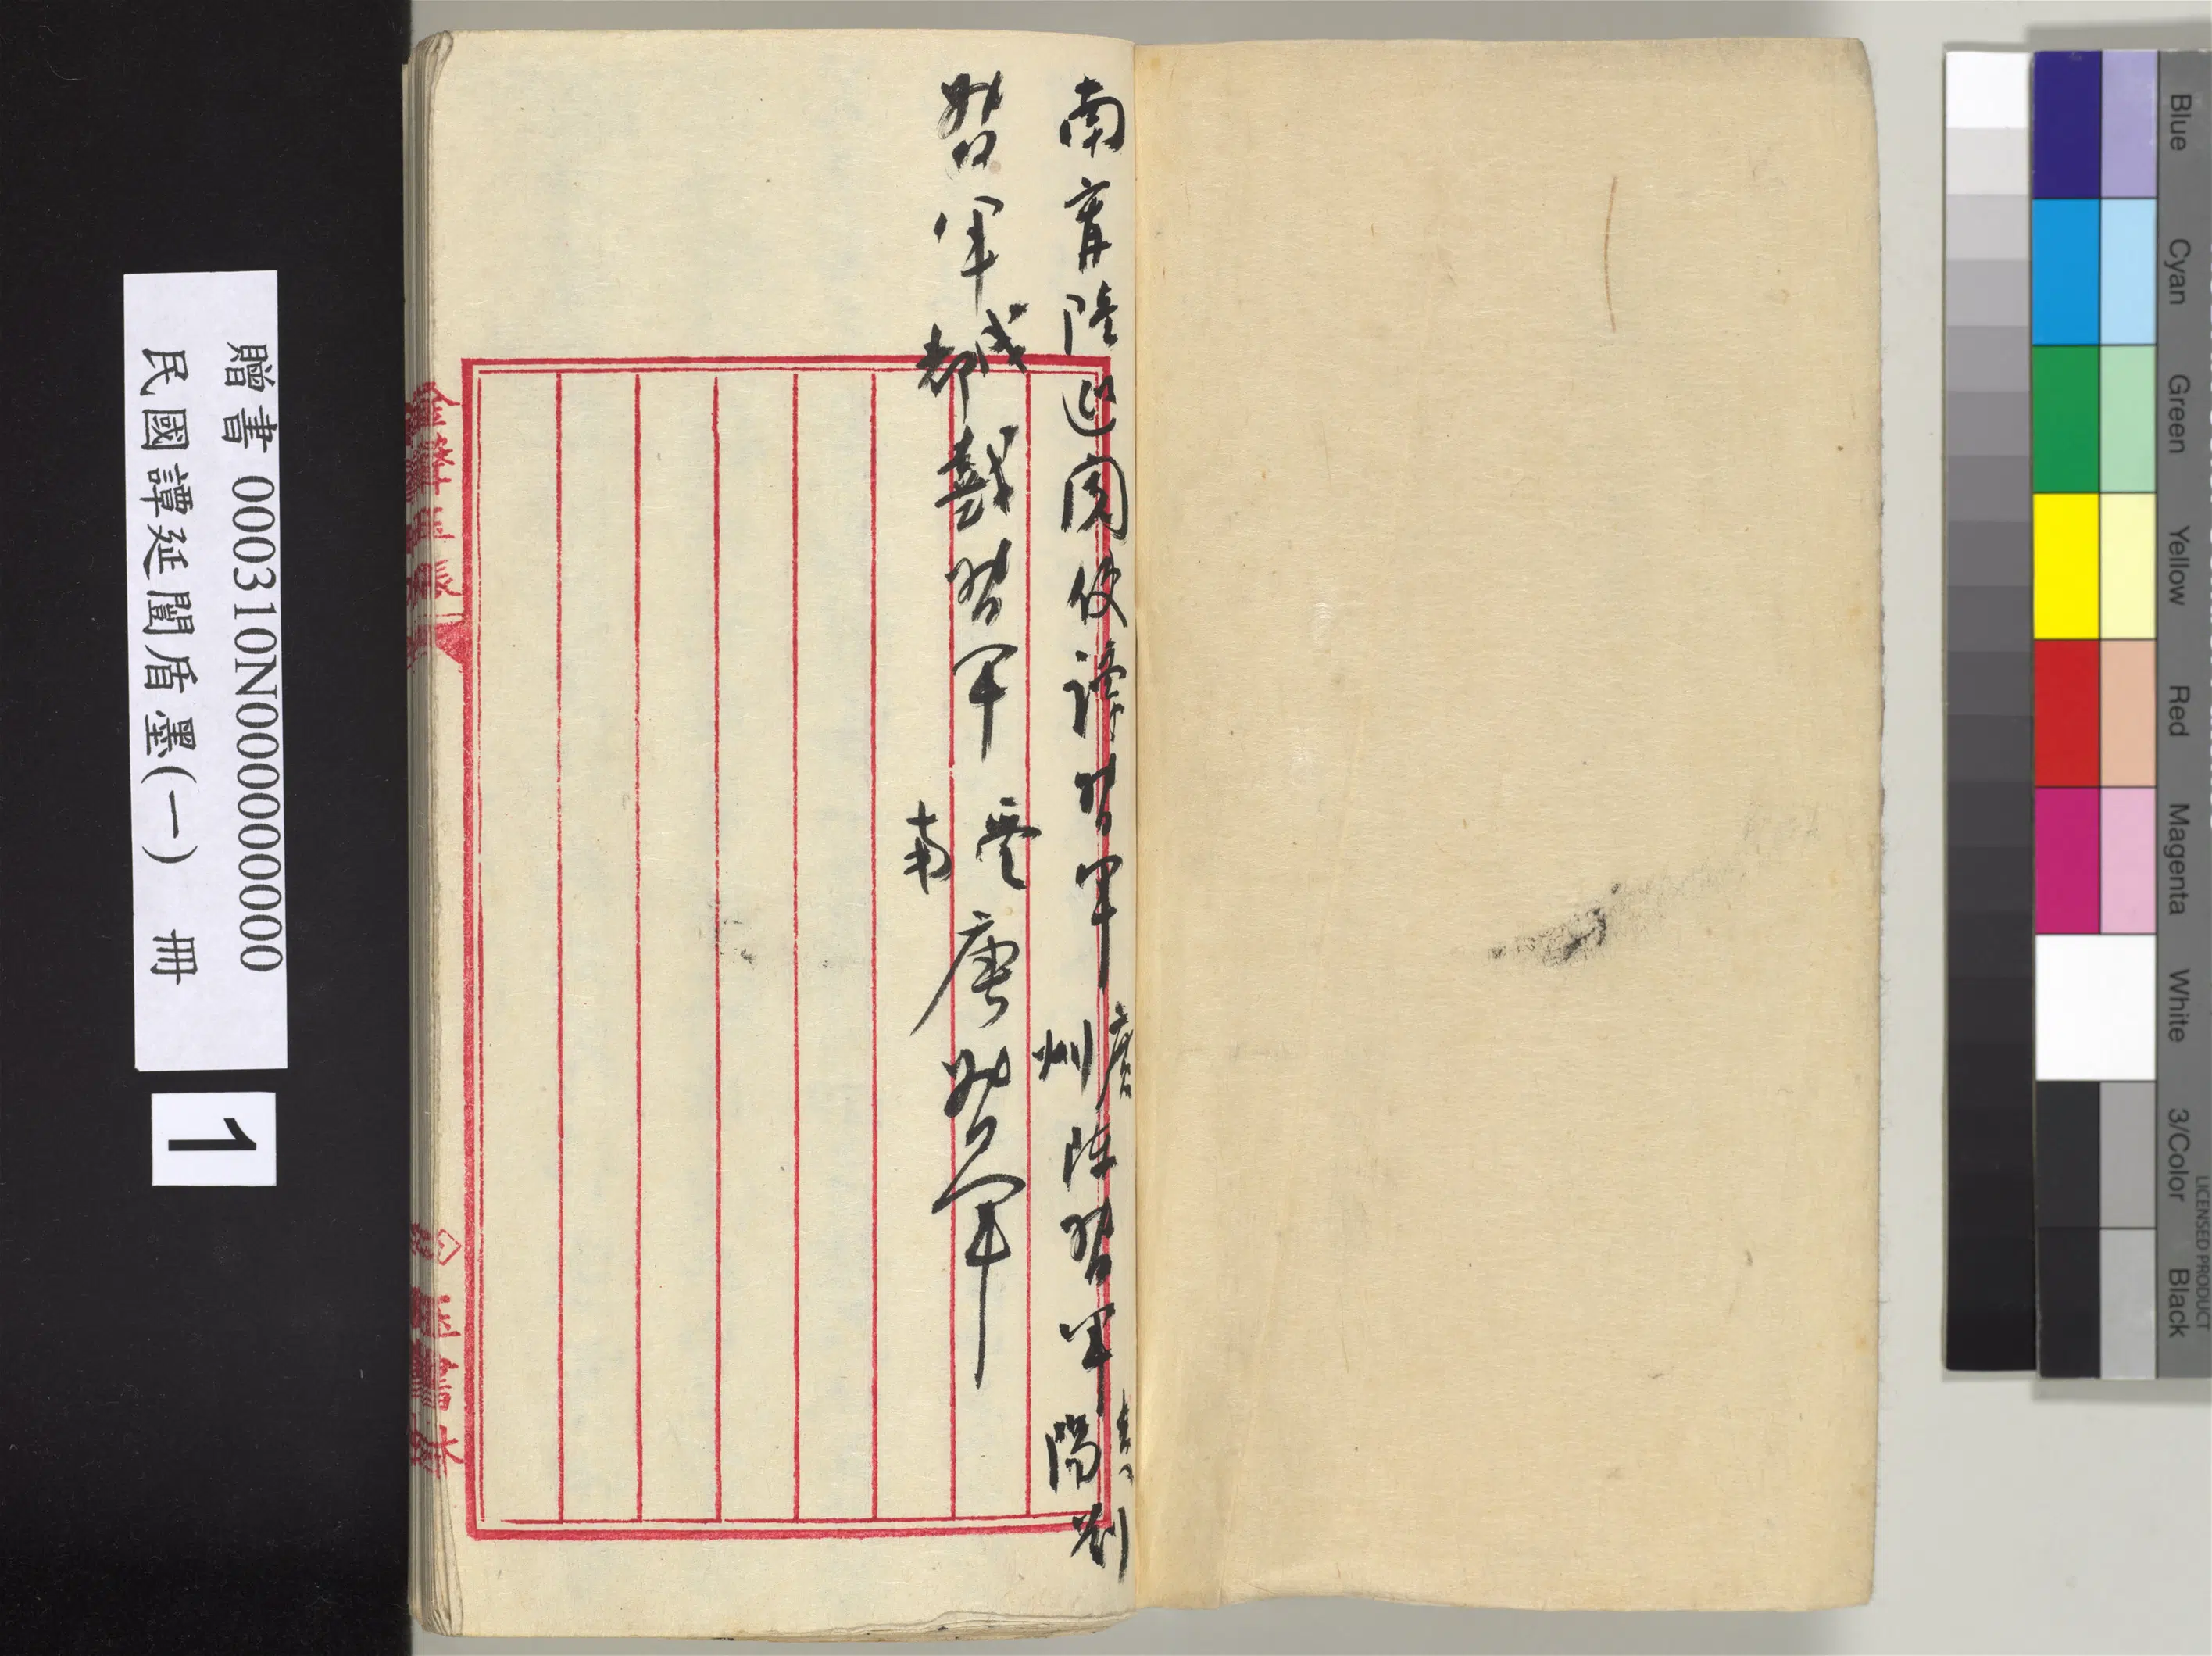 南甯陸巡閱使譚督軍廣州陳督軍貴陽劉
督軍成都戴督軍雲南唐督軍
贈書 000310N000000000000
民國譚延闓盾墨(一) 冊
1
Blue
Cyan
Green
Yellow
Red
Magenta
White
3/Color
Black
LICENSED PRODUCT